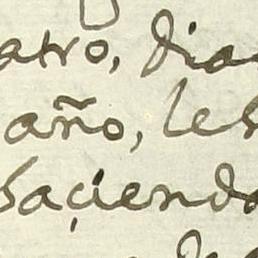 atro, dia
año, les
saçiendo